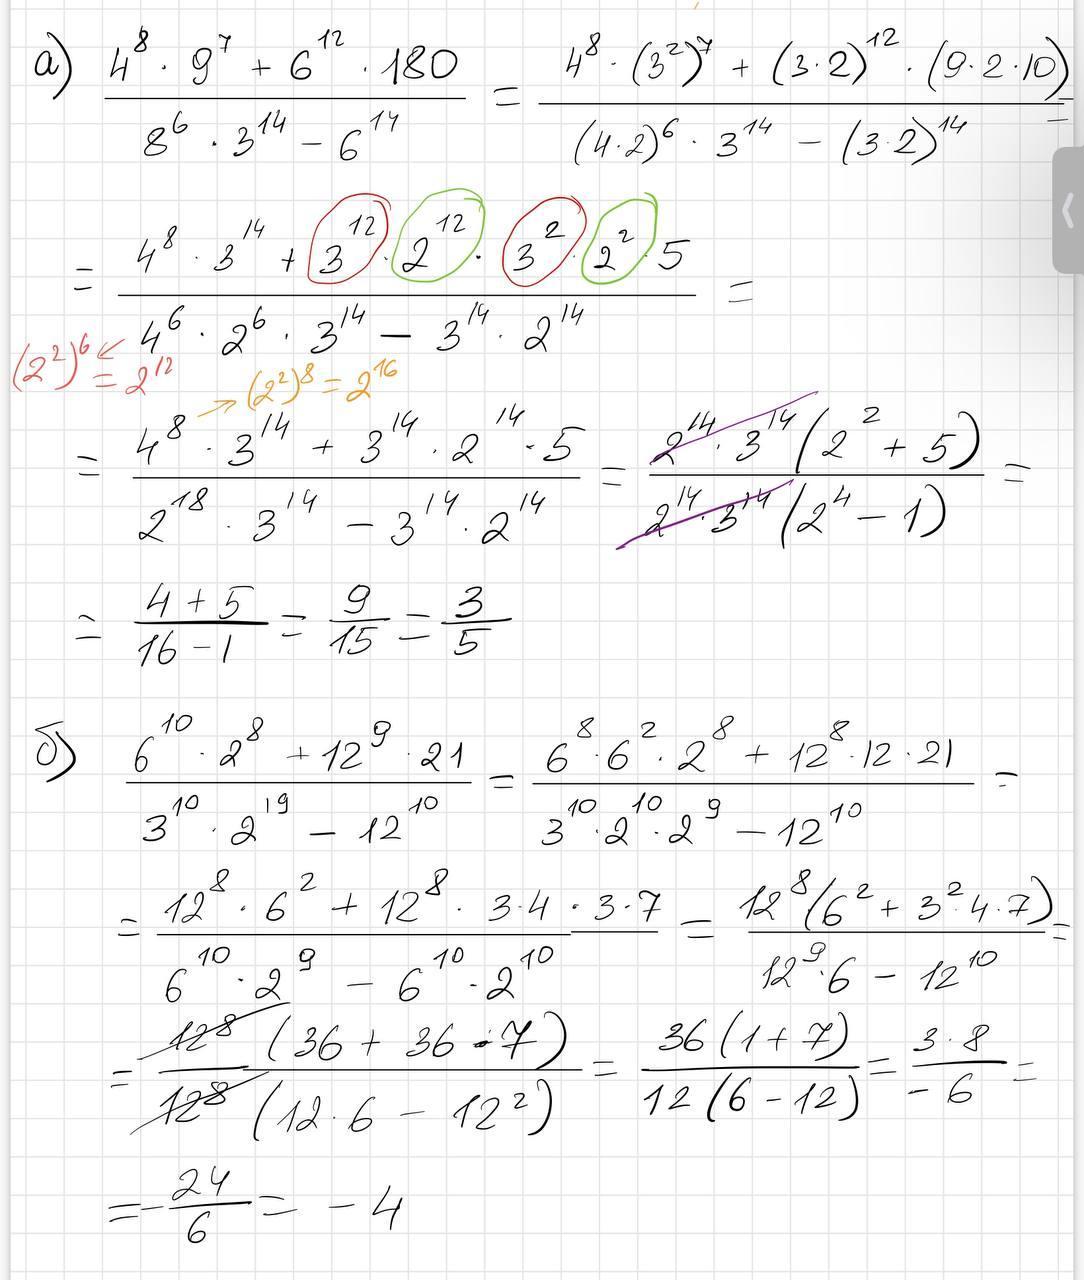 а) (4^8 · 9^7 + 6^12 · 180) / (8^6 · 3^14 − 6^14) = (4^8 · (3^2)^7 + (3·2)^12 · (9·2·10)) / ((4·2)^6 · 3^14 − (3·2)^14) =
= (4^8 · 3^14 + 3^12 · 2^12 · 3^2 · 2^2 · 5) / (4^6 · 2^6 · 3^14 − 3^14 · 2^14) =
(2^2)^6 = 2^12
(2^2)^8 = 2^16
= (4^8 · 3^14 + 3^14 · 2^14 · 5) / (2^18 · 3^14 − 3^14 · 2^14) = (2^14 · 3^14 (2^2 + 5)) / (2^14 · 3^14 (2^4 − 1)) =
= (4 + 5) / (16 − 1) = 9/15 = 3/5
б) (6^10 · 2^8 + 12^9 · 21) / (3^10 · 2^19 − 12^10) = (6^8 · 6^2 · 2^8 + 12^8 · 12 · 21) / (3^10 · 2^10 · 2^9 − 12^10) =
= (12^8 · 6^2 + 12^8 · 3·4 · 3·7) / (6^10 · 2^9 − 6^10 · 2^10) = (12^8 (6^2 + 3^2·4·7)) / (12^9 · 6 − 12^10) =
= (12^8 (36 + 36 · 7)) / (12^8 (12·6 − 12^2)) = (36 (1 + 7)) / (12 (6 − 12)) = (3 · 8) / (−6) =
= − 24/6 = − 4